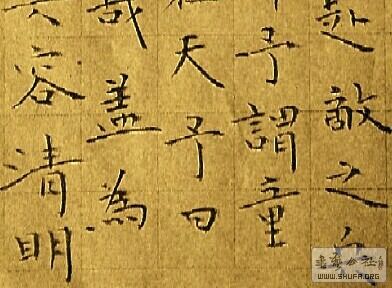 赴敵之
子謂童
天子曰
哉蓋為
容清明
WWW.SHUFA.ORG